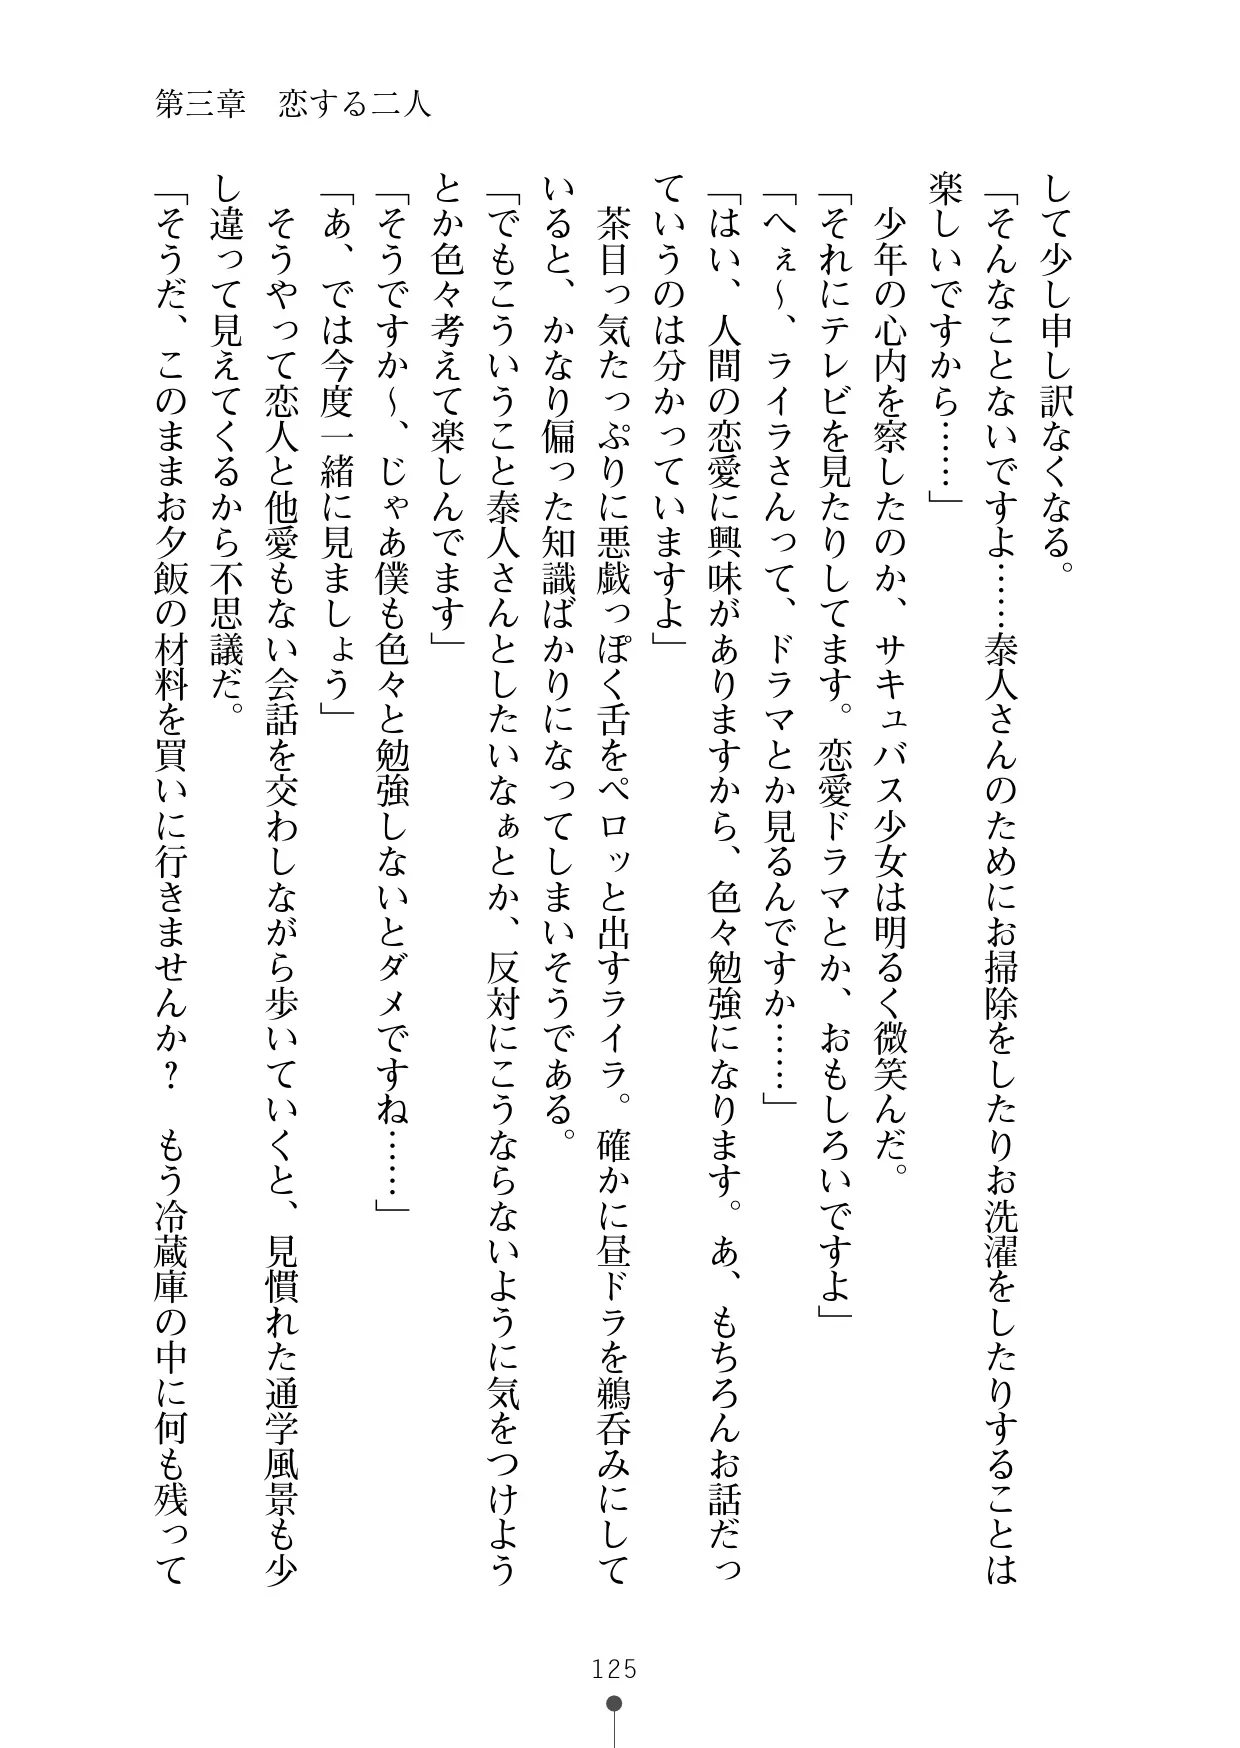 第三章　恋する二人
して少し申し訳なくなる。
「そんなことないですよ……泰人さんのためにお掃除をしたりお洗濯をしたりすることは
楽しいですから……」
　少年の心内を察したのか、サキュバス少女は明るく微笑んだ。
「それにテレビを見たりしてます。恋愛ドラマとか、おもしろいですよ」
「へぇ～、ライラさんって、ドラマとか見るんですか……」
「はい、人間の恋愛に興味がありますから、色々勉強になります。あ、もちろんお話だっ
ていうのは分かっていますよ」
　茶目っ気たっぷりに悪戯っぽく舌をペロッと出すライラ。確かに昼ドラを鵜呑みにして
いると、かなり偏った知識ばかりになってしまいそうである。
「でもこういうこと泰人さんとしたいなぁとか、反対にこうならないように気をつけよう
とか色々考えて楽しんでます」
「そうですか～、じゃあ僕も色々と勉強しないとダメですね……」
「あ、では今度一緒に見ましょう」
　そうやって恋人と他愛もない会話を交わしながら歩いていくと、見慣れた通学風景も少
し違って見えてくるから不思議だ。
「そうだ、このままお夕飯の材料を買いに行きませんか？　もう冷蔵庫の中に何も残って
125